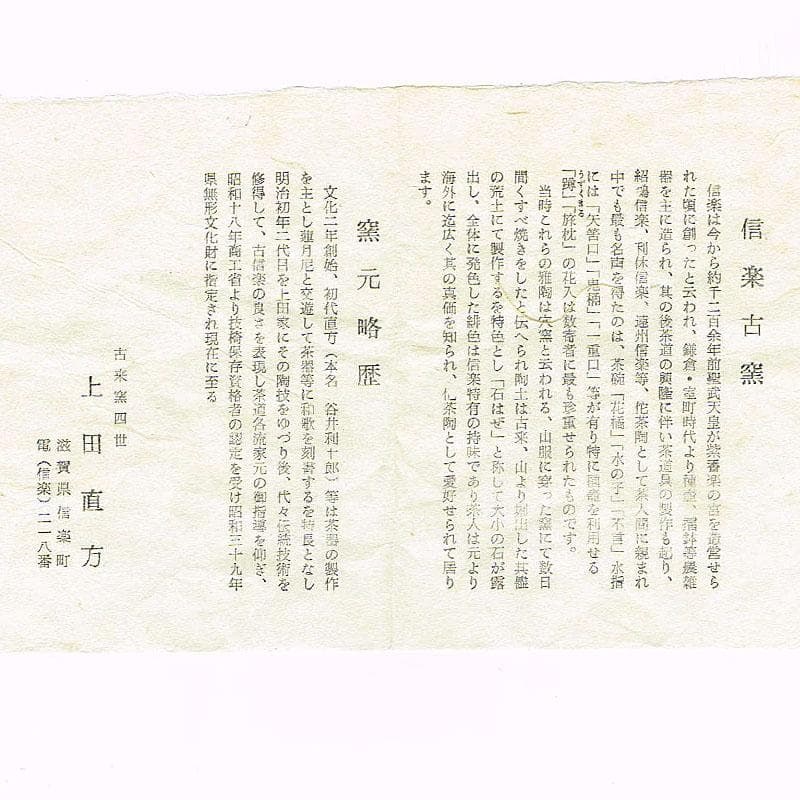 信楽古窯
信楽は今から約千二百余年前聖武天皇が紫香楽の宮を造営せら
れた頃に創ったと云われ、鎌倉・室町時代より種壺、擂鉢等農雑
器を主に造られ、其の後茶道の興隆に伴い茶道具の製作も起り、
紹鴎信楽、利休信楽、遠州信楽等、侘茶陶として茶人間に親まれ
中でも最も名声を得たのは、茶碗「花橘」「水の子」「不首」水指
には「矢筈口」「鬼桶」「一重口」等が有り特に種壺を利用せる
「蹲」「旅枕」の花入は数寄者に最も珍重せられたものです。
うずくまる
当時これらの雅陶は穴窯と云われる、山服に穿った窯にて数日
間くすべ焼きをしたと伝へられ陶土は古来、山より掘出した其儘
の荒土にて製作するを特色とし「石はぜ」と称して大小の石が露
出し、全体に発色した緋色は信楽特有の持味であり茶人は元より
海外に迄広く其の真価を知られ、侘茶陶として愛好せられて居り
ます。
窯元略歴
文化二年創始、初代直方(本名 谷井利十郎)等は茶器の製作
を主とし蓮月尼と交遊して茶器等に和歌を刻書するを特長となし
明治初年二代目を上田家にその陶技をゆづり後、代々伝統技術を
修得して、古信楽の良さを表現し茶道各流家元の御指導を仰ぎ、
昭和十八年商工省より技術保存資格者の認定を受け昭和三十九年
県無形文化財に指定され現在に至る
古来窯四世
上田直方
滋賀県信楽町
電(信楽)二一八番